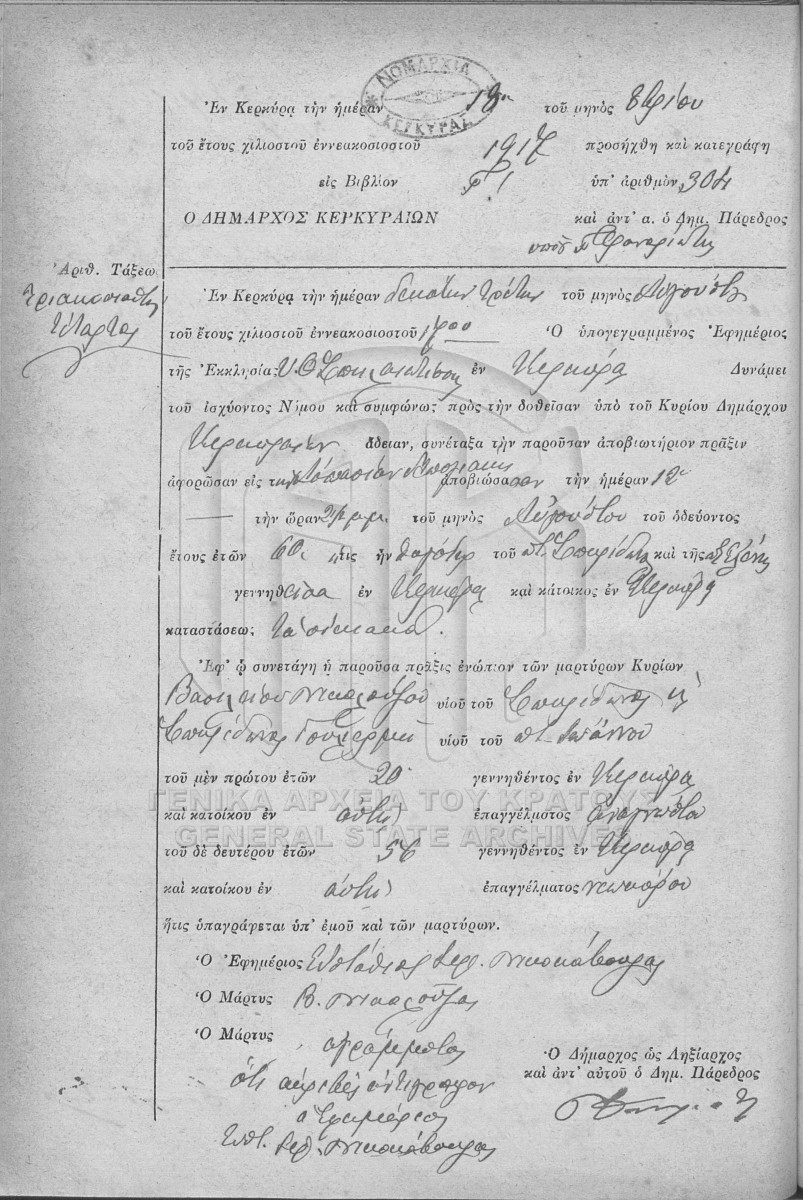 ΝΟΜΑΡΧΙΑ
ΚΕΡΚΥΡΑΣ
Ἐν Κερκύρᾳ τὴν ἡμέραν τοῦ μηνὸς 8βρίου
τοῦ ἔτους χιλιοστοῦ ἐννεακοσιοστοῦ 1917 προσήχθη καὶ κατεγράφη
εἰς Βιβλίον ὑπ' ἀριθμὸν 304
Ο ΔΗΜΑΡΧΟΣ ΚΕΡΚΥΡΑΙΩΝ καὶ ἀντ' α. ὁ Δημ. Πάρεδρος
Ἀριθ. Τάξεω
Τριακοσιοστὸς
Τέταρτος
Ἐν Κερκύρᾳ τὴν ἡμέραν δεκάτην τρίτην τοῦ μηνὸς Αὐγούστου
τοῦ ἔτους χιλιοστοῦ ἐννεακοσιοστοῦ 1900 Ὁ ὑπογεγραμμένος Ἐφημέριος
τῆς Ἐκκλησίας ἐν Κερκύρᾳ Δυνάμει
τοῦ ἰσχύοντος Νόμου καὶ συμφώνως πρὸς τὴν δοθεῖσαν ὑπὸ τοῦ Κυρίου Δημάρχου
Κερκυραίων ἄδειαν, συνέταξα τὴν παροῦσαν ἀποβιωτήριον πρᾶξιν
ἀφορῶσαν εἰς τὴν ἀποβιώσασαν τὴν ἡμέραν 12
τὴν ὥραν τοῦ μηνὸς Αὐγούστου τοῦ ὁδεύοντος
ἔτους ἐτῶν 60 ἥτις ἦν θυγάτηρ τοῦ π. Σπυρίδωνος καὶ τῆς Ἑλένης
γεννηθεῖσα ἐν Κερκύρᾳ καὶ κάτοικος ἐν Κερκύρᾳ
καταστάσεως
Ἐφ' ᾧ συνετάγη ἡ παροῦσα πρᾶξις ἐνώπιον τῶν μαρτύρων Κυρίων
Βασιλείου υἱοῦ τοῦ Σπυρίδωνος κ
Σπυρίδωνος υἱοῦ τοῦ π. Ἰωάννου
τοῦ μὲν πρώτου ἐτῶν 20 γεννηθέντος ἐν Κερκύρᾳ
ΓΕΝΙΚΑ ΑΡΧΕΙΑ ΤΟΥ ΚΡΑΤΟΥΣ
καὶ κατοίκου ἐν αὐτῇ ἐπαγγέλματος ἀναγνώστου
GENERAL STATE ARCHIVES
τοῦ δὲ δευτέρου ἐτῶν 56 γεννηθέντος ἐν Κερκύρᾳ
καὶ κατοίκου ἐν αὐτῇ ἐπαγγέλματος νεωκόρου
ἥτις ὑπαγράφεται ὑπ' ἐμοῦ καὶ τῶν μαρτύρων.
Ὁ Ἐφημέριος Εὐστάθιος
Ὁ Μάρτυς Β.
Ὁ Μάρτυς ἀγράμματος
Ὁ Δήμαρχος ὡς Ληξίαρχος
ὅτι ἀκριβὲς ἀντίγραφον
καὶ ἀντ' αὐτοῦ ὁ Δημ. Πάρεδρος
ὁ Ἐφημέριος
Εὐστ.